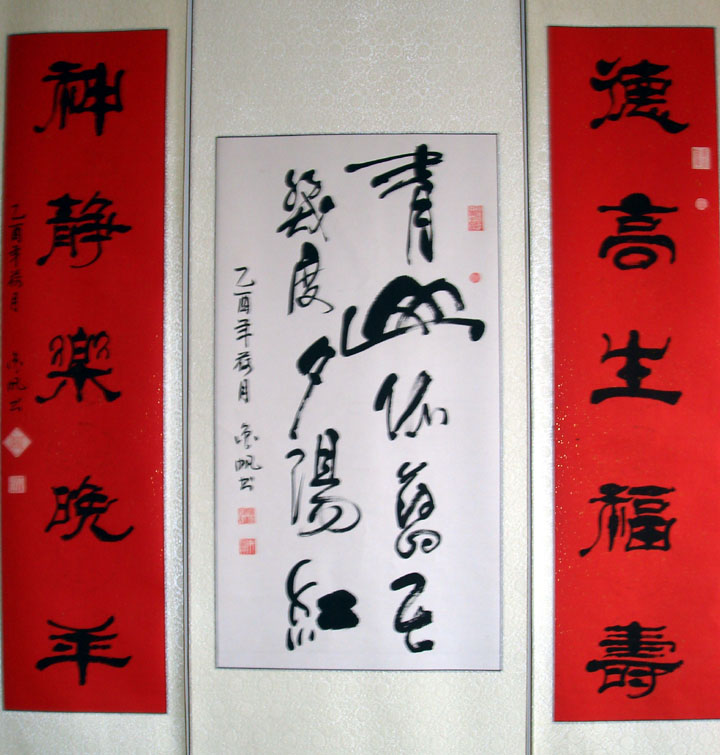 德高生福壽
青山依舊在
幾度夕陽紅
乙酉年荷月 帆书
神靜樂晚年
乙酉年荷月 帆书